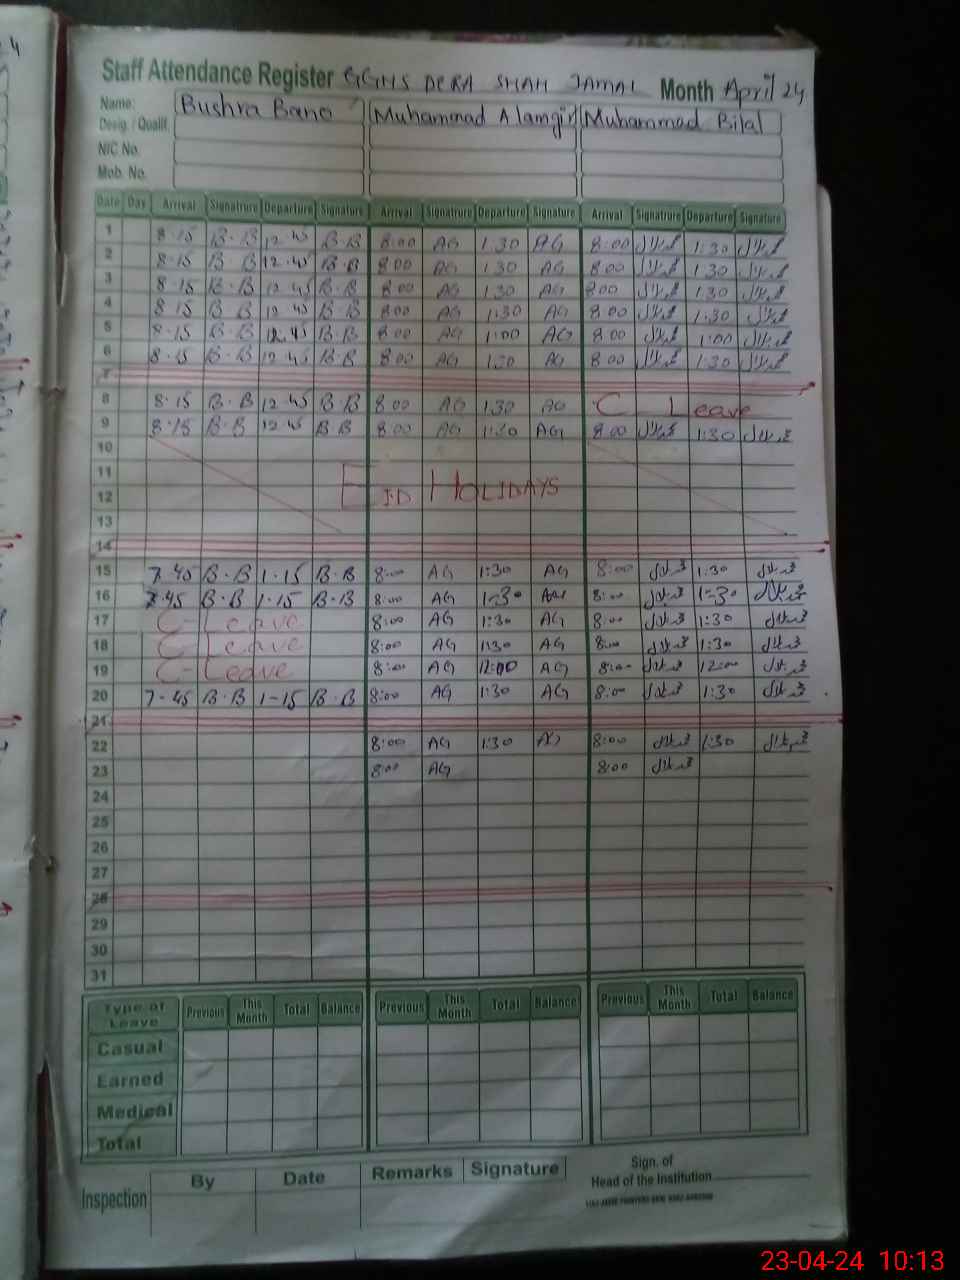 Staff Attendance Register GGHS DERA SHAH JAMAL Month April 24
Name: Bushra Bano Muhammad Alamgir Muhammad Bilal
Desig. / Qualif.
NIC No.
Mob. No.
Date Day Arrival Signatrure Departure Signature Arrival Signatrure Departure Signature Arrival Signatrure Departure Signature
1 8.15 B.B 12.45 B.B 8:00 AG 1:30 AG 8:00 محمد بلال 1:30 محمد بلال
2 8.15 B.B 12.45 B.B 8:00 AG 1:30 AG 8:00 محمد بلال 1:30 محمد بلال
3 8.15 B.B 12.45 B.B 8:00 AG 1:30 AG 8:00 محمد بلال 1:30 محمد بلال
4 8.15 B.B 12.45 B.B 8:00 AG 1:30 AG 8:00 محمد بلال 1:30 محمد بلال
5 8.15 B.B 12.45 B.B 8:00 AG 1:00 AG 8:00 محمد بلال 1:00 محمد بلال
6 8.15 B.B 12.45 B.B 8:00 AG 1:30 AG 8:00 محمد بلال 1:30 محمد بلال
7
8 8.15 B.B 12.45 B.B 8:00 AG 1:30 AG C Leave
9 8.15 B.B 12.45 B.B 8:00 AG 1:30 AG 8:00 محمد بلال 1:30 محمد بلال
10
11
12 EID HOLIDAYS
13
14
15 7.45 B.B 1.15 B.B 8:00 AG 1:30 AG 8:00 محمد بلال 1:30 محمد بلال
16 7.45 B.B 1.15 B.B 8:00 AG 1:30 AG 8:00 محمد بلال 1:30 محمد بلال
17 C-Leave 8:00 AG 1:30 AG 8:00 محمد بلال 1:30 محمد بلال
18 C-Leave 8:00 AG 1:30 AG 8:00 محمد بلال 1:30 محمد بلال
19 C-Leave 8:00 AG 12:00 AG 8:00 محمد بلال 12:00 محمد بلال
20 7-45 B.B 1-15 B.B 8:00 AG 1:30 AG 8:00 محمد بلال 1:30 محمد بلال
21
22 8:00 AG 1:30 AG 8:00 محمد بلال 1:30 محمد بلال
23 8:00 AG 8:00 محمد بلال
24
25
26
27
28
29
30
31
Type of Leave Previous This Month Total Balance Previous This Month Total Balance Previous This Month Total Balance
Casual
Earned
Medical
Total
Inspection By Date Remarks Signature Sign. of Head of the Institution
23-04-24 10:13